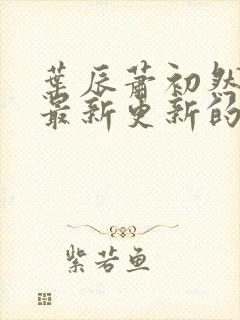 葉辰蕭初然
最新更新的
紫若魚